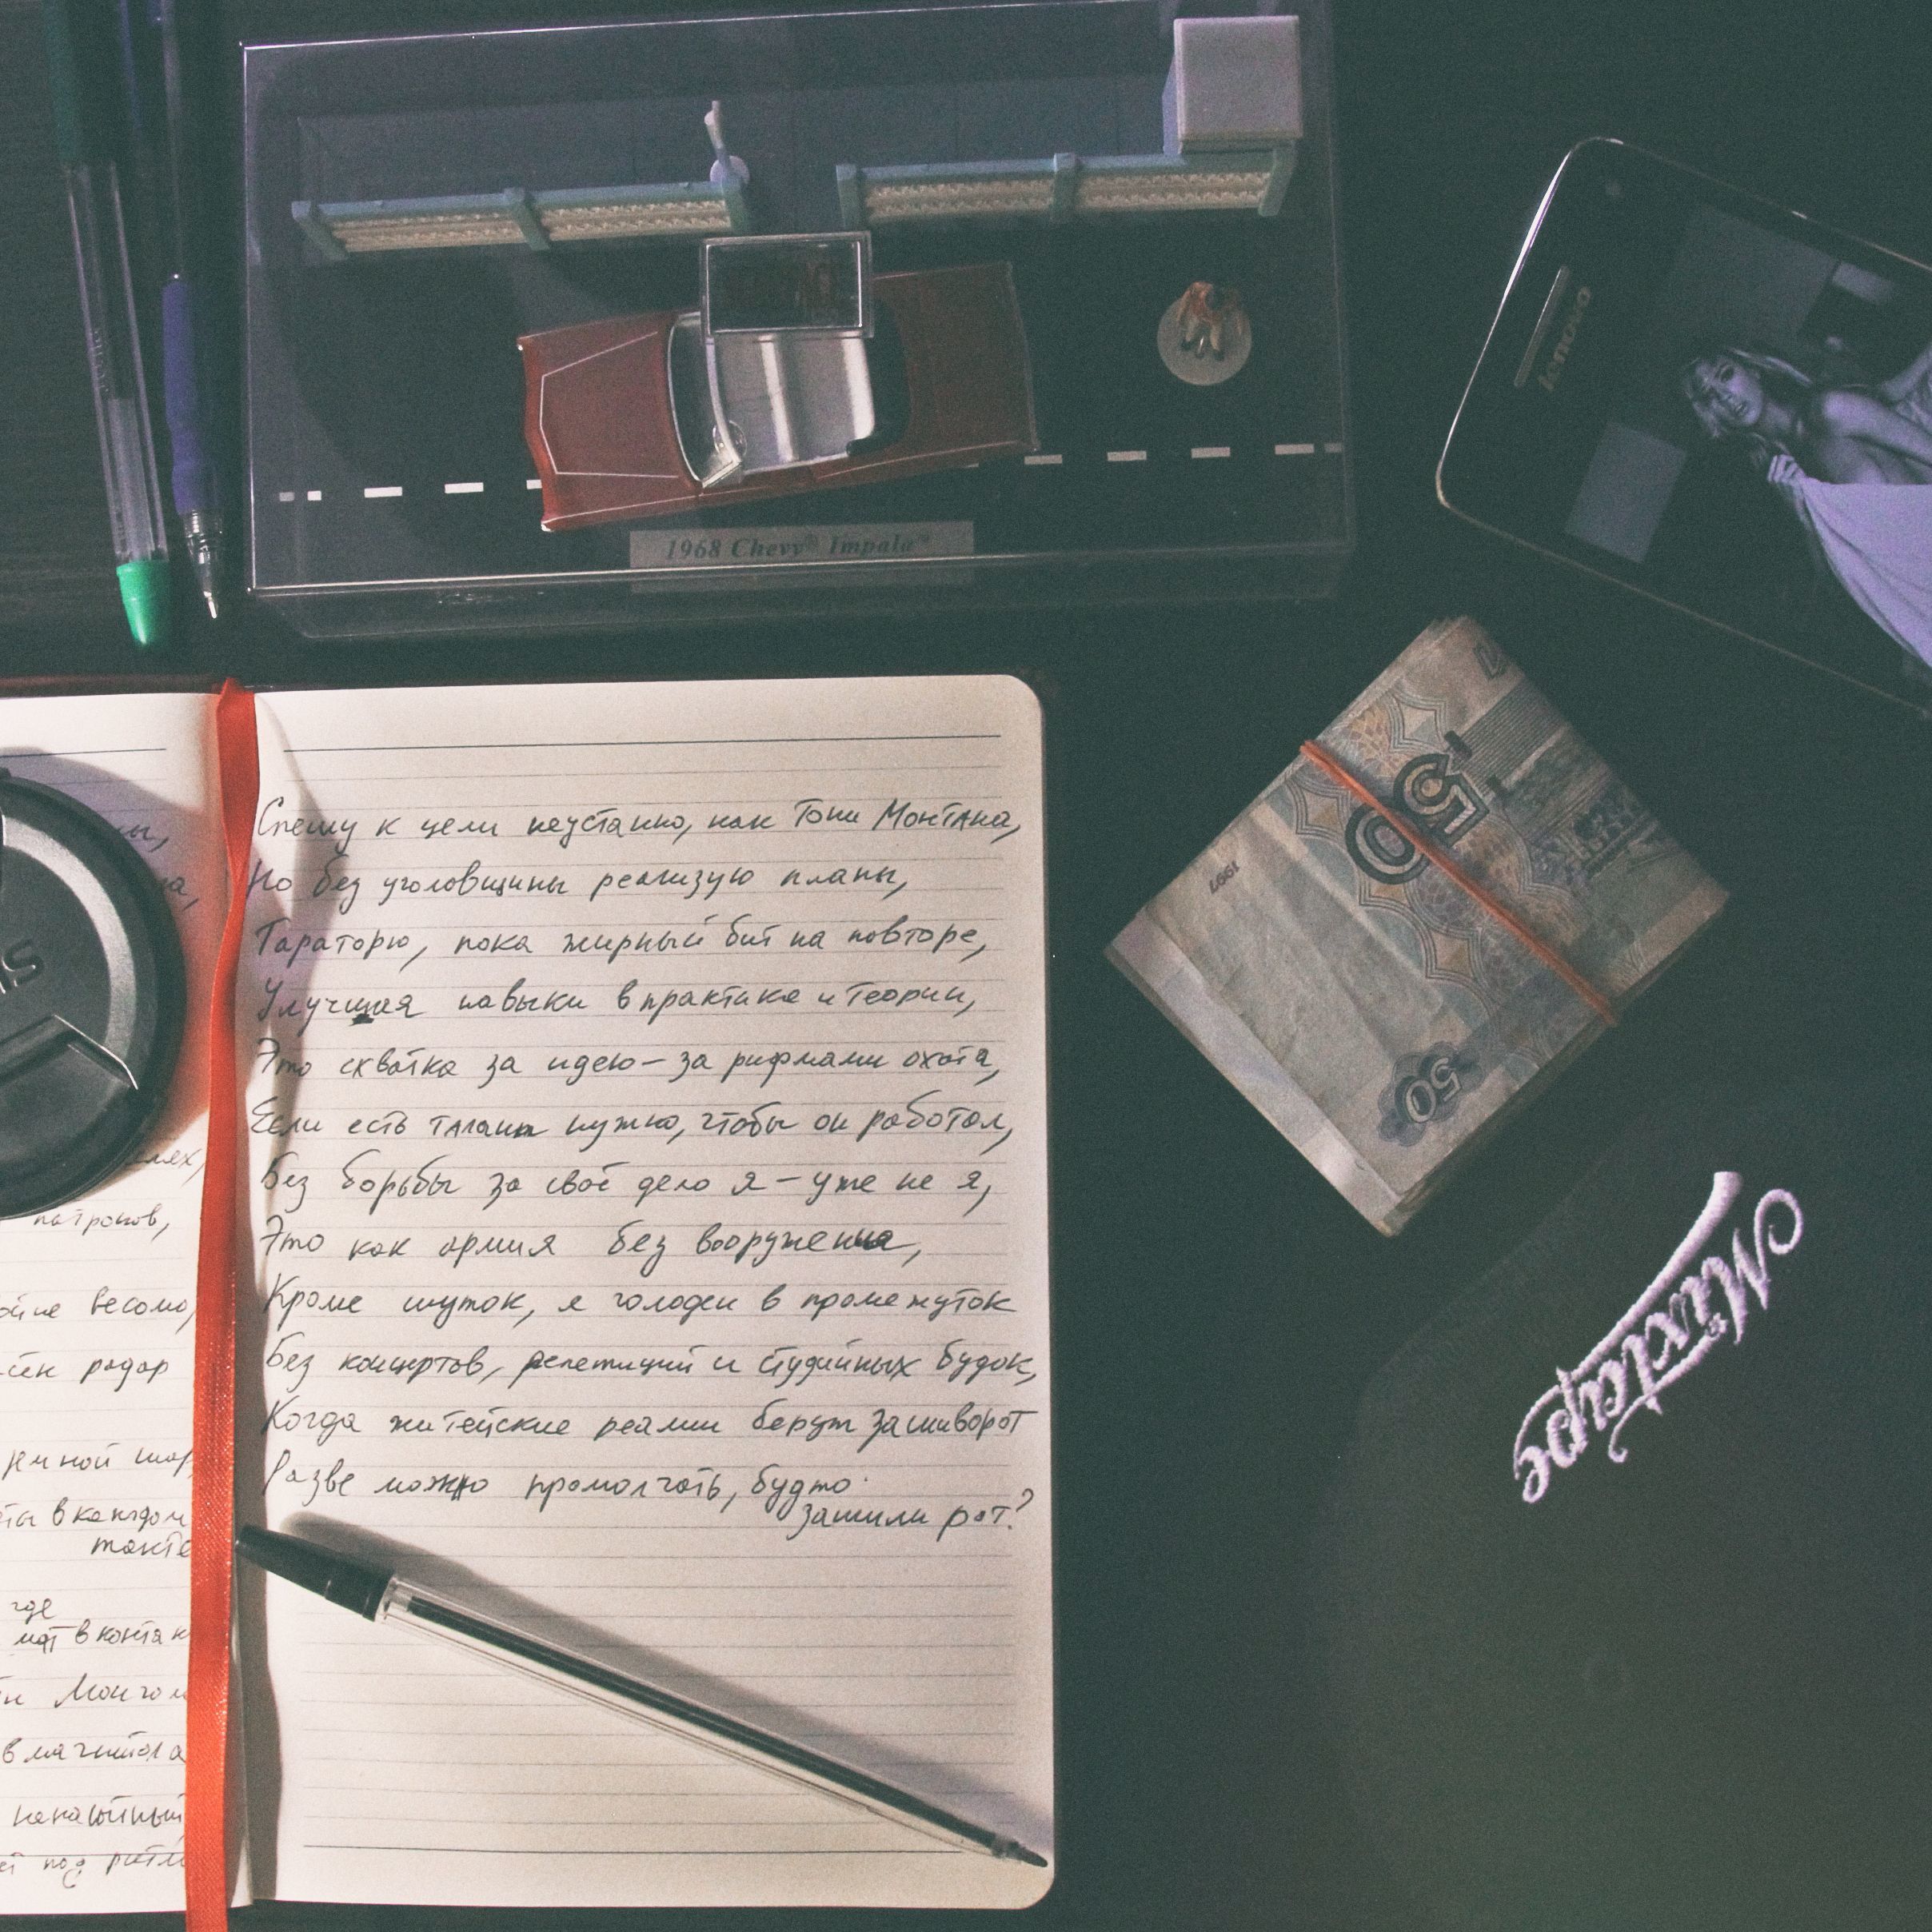 1968 Chevy® Impala™
lenovo
Спешу к цели неустанно, как Тони Монтана,
Но без уголовщины реализую планы,
Тараторю, пока жирный бит на повторе,
Улучшая навыки в практике и теории,
Это схватка за идею – за рифмами охота,
Если есть талант нужно, чтобы он работал,
Без борьбы за своё дело я – уже не я,
Это как армия без вооружения,
Кроме шуток, я голоден в промежуток
Без концертов, репетиций и студийных будок,
Когда житейские реалии берут за шиворот
Разве можно промолчать, будто
зашили рот?
патронов,
весомо,
радар
шар,
в каждом
такте
где
в контак
под ритм
50
1997
50
Mixtape